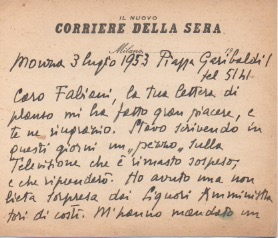 IL NUOVO
CORRIERE DELLA SERA
Milano
3 luglio 1953 Piazza Garibaldi 1
tel 5141
Caro Fabiani, la tua lettera di
plauso mi ha fatto gran piacere, e
te ne ringrazio. Stavo scrivendo in
questi giorni un "pezzo" sulla
Televisione che è rimasto sospeso,
e che riprenderò. Ho avuto una non
lieta sorpresa dai Signori Amministra
tori di costì. M'hanno mandato un